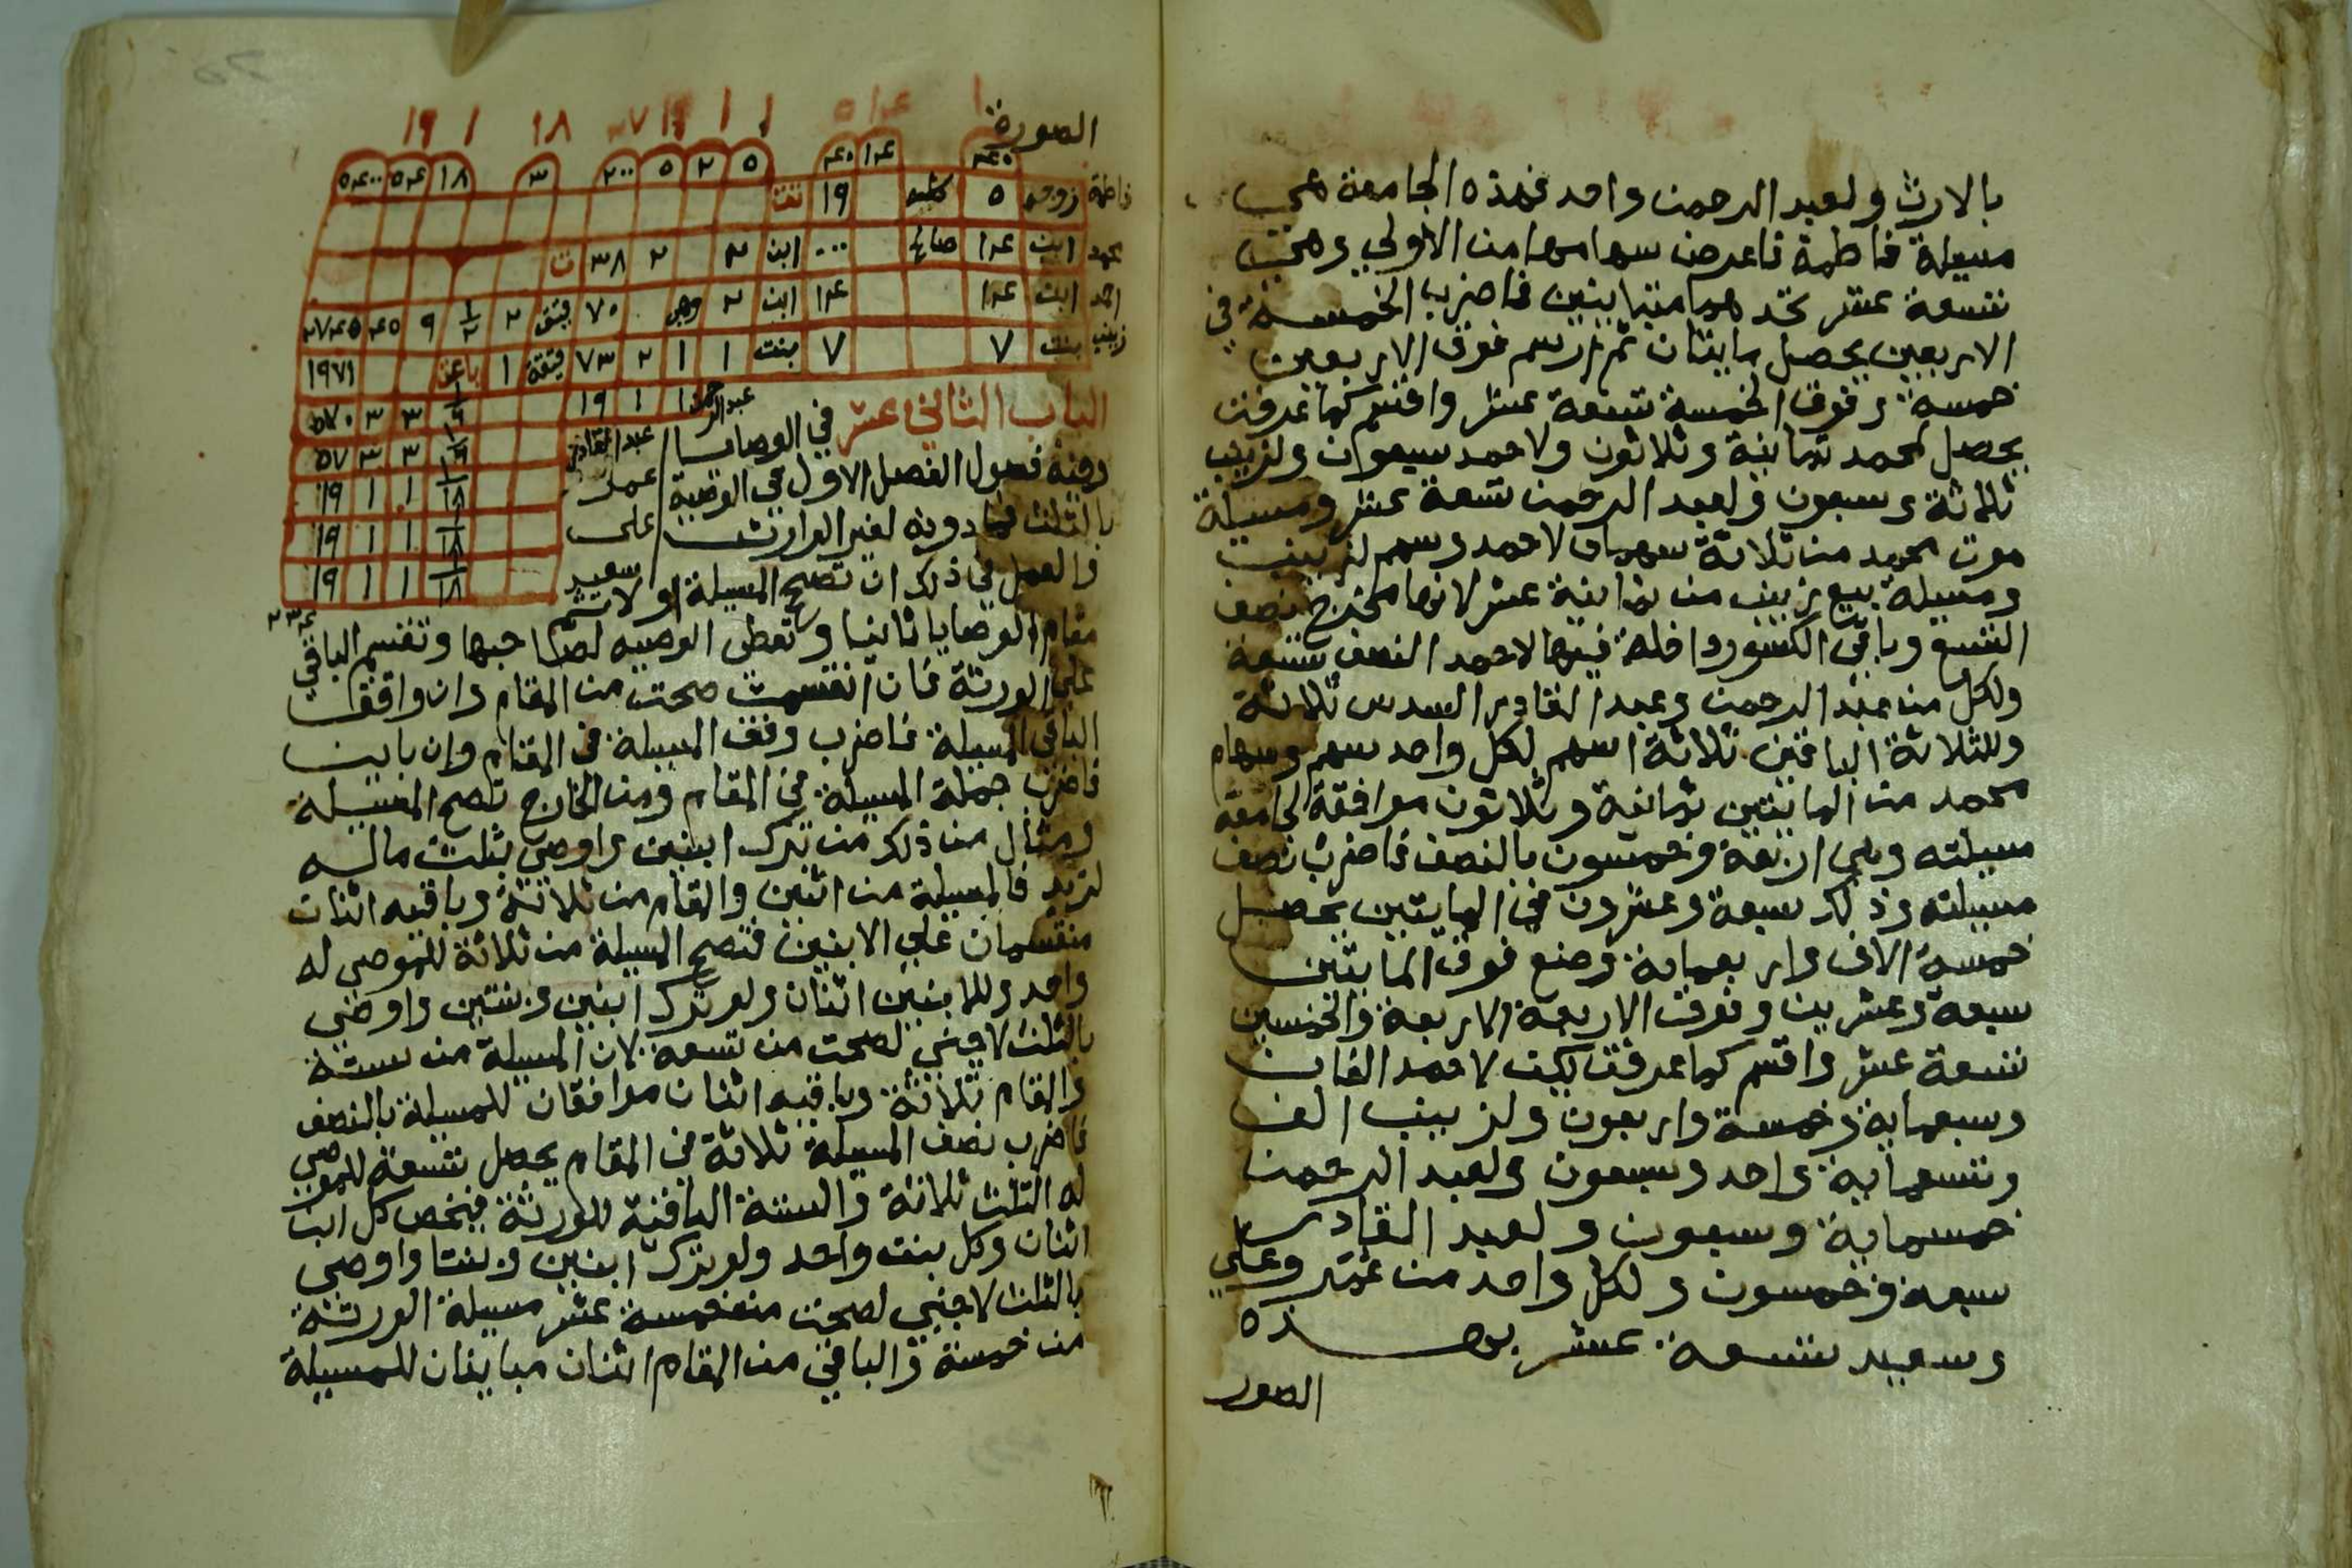 بالارث ولعبد الرحمن واحد فهذه الجامعة هي
مسيلة فاطمة فاعرض سهامها من الأولي وهي
تسعة عشر تجدهما متباينين فاضرب الخمسة في
الاربعين يحصل مايتان ثم ارسم فوق الاربعين
خمسة وفوق الخمسة تسعة عشر واقسم كما عرفت
يحصل لمحمد ثمانية وثلاثون ولاحمد سبعون ولزينب
ثلاثة وسبعون ولعبد الرحمن تسعة عشر ومسيلة
موت محمد من ثلاثة سهمان لاحمد وسهم لزينب
ومسيلة بيع زينب من ثمانية عشر لانها مخرج نصف
التسع وباقي الكسور داخلة فيها لاحمد النصف تسعة
ولكل من عبد الرحمن وعبد القادر السدس ثلاثة
وللثلاثة الباقين ثلاثة اسهم لكل واحد سهم وسهام
محمد من المايتين ثمانية وثلاثون موافقة لجامعة
مسيلته وهي اربعة وخمسون بالنصف فاضرب نصف
مسيلته وذلك سبعة وعشرون في المايتين يحصل
خمسة الاف واربعماية وضع فوق المايتين
سبعة وعشرين وفوق الاربعة والخمسين
تسعة عشر واقسم كما عرفت يكن لاحمد الفان
وسبعماية وخمسة واربعون ولزينب الف
وتسعماية واحد وسبعون ولعبد الرحمن
خمسماية وسبعون ولعبد القادر
سبعة وخمسون ولكل واحد من عمر وعلي
وسعيد تسعة عشر بهذه
الصور
الصورة
١ ١٤ ٥ ١ ١ ١٩ ٢٧ ١٨ ١ ١٩
٤٠ ١٤ ٤٠ ٥ ٢ ٥ ٢٠٠ ٣ ١٨ ٥٤ ٥٤٠٠
فاطمة زوجه ٥ ١٩
محمد ابن ١٤ صالح ابن ٢ ٢ ٣٨ ت
احمد ابن ١٤ ١٤ ابن ٢ ٧٠ ٢ ١/٢ ٩ ٤٥ ٢٧٤٥
زينب بنت ٧ ٧ بنت ١ ١ ٢ ٧٣ ١ ١٩٧١
عبد الرحمن ١ ١ ١٩ ١/٦ ٣ ٣ ٥٧٠
عبد القادر ١/٦ ٣ ٣ ٥٧
عمر ١/١٨ ١ ١ ١٩
علي ١/١٨ ١ ١ ١٩
سعيد ١/١٨ ١ ١ ١٩
الباب الثاني عشر في الوصايا
وفيه فصول الفصل الاول في الوصية
بالثلث فما دونه لغير الوارث
والعمل في ذلك ان تصح المسيلة اولا ثم
مقام الوصايا ثانيا وتعطى الوصيه لصاحبها وتقسم الباقي
على الورثة فان انقسمت صحت من المقام وان وافق
الباقي المسيلة فاضرب وفق المسيلة في المقام وان باين
فاضرب جملة المسيلة في المقام ومن الخارج تصح المسيلة
ومثال من ذلك من ترك ابنين واوصى بثلث ماله
لزيد فالمسيلة من اثنين والمقام من ثلاثة وباقيه اثنان
منقسمان علي الابنين فتصح المسيلة من ثلاثة للموصى له
واحد وللابنين اثنان ولو ترك ابنين وبنتين واوصي
بالثلث لاجنبي لصحت من تسعة لان المسيلة من ستة
والمقام ثلاثة وباقيه اثنان موافقان للمسيلة بالنصف
فاضرب نصف المسيلة ثلاثة في المقام يحصل تسعة للموصي
له الثلث ثلاثة والستة الباقية للورثة فيخص كل ابن
اثنان وكل بنت واحد ولو ترك ابنين وبنتا واوصي
بالثلث لاجنبي لصحت من خمسة عشر مسيلة الورثة
من خمسة والباقي من المقام اثنان مباينان للمسيلة